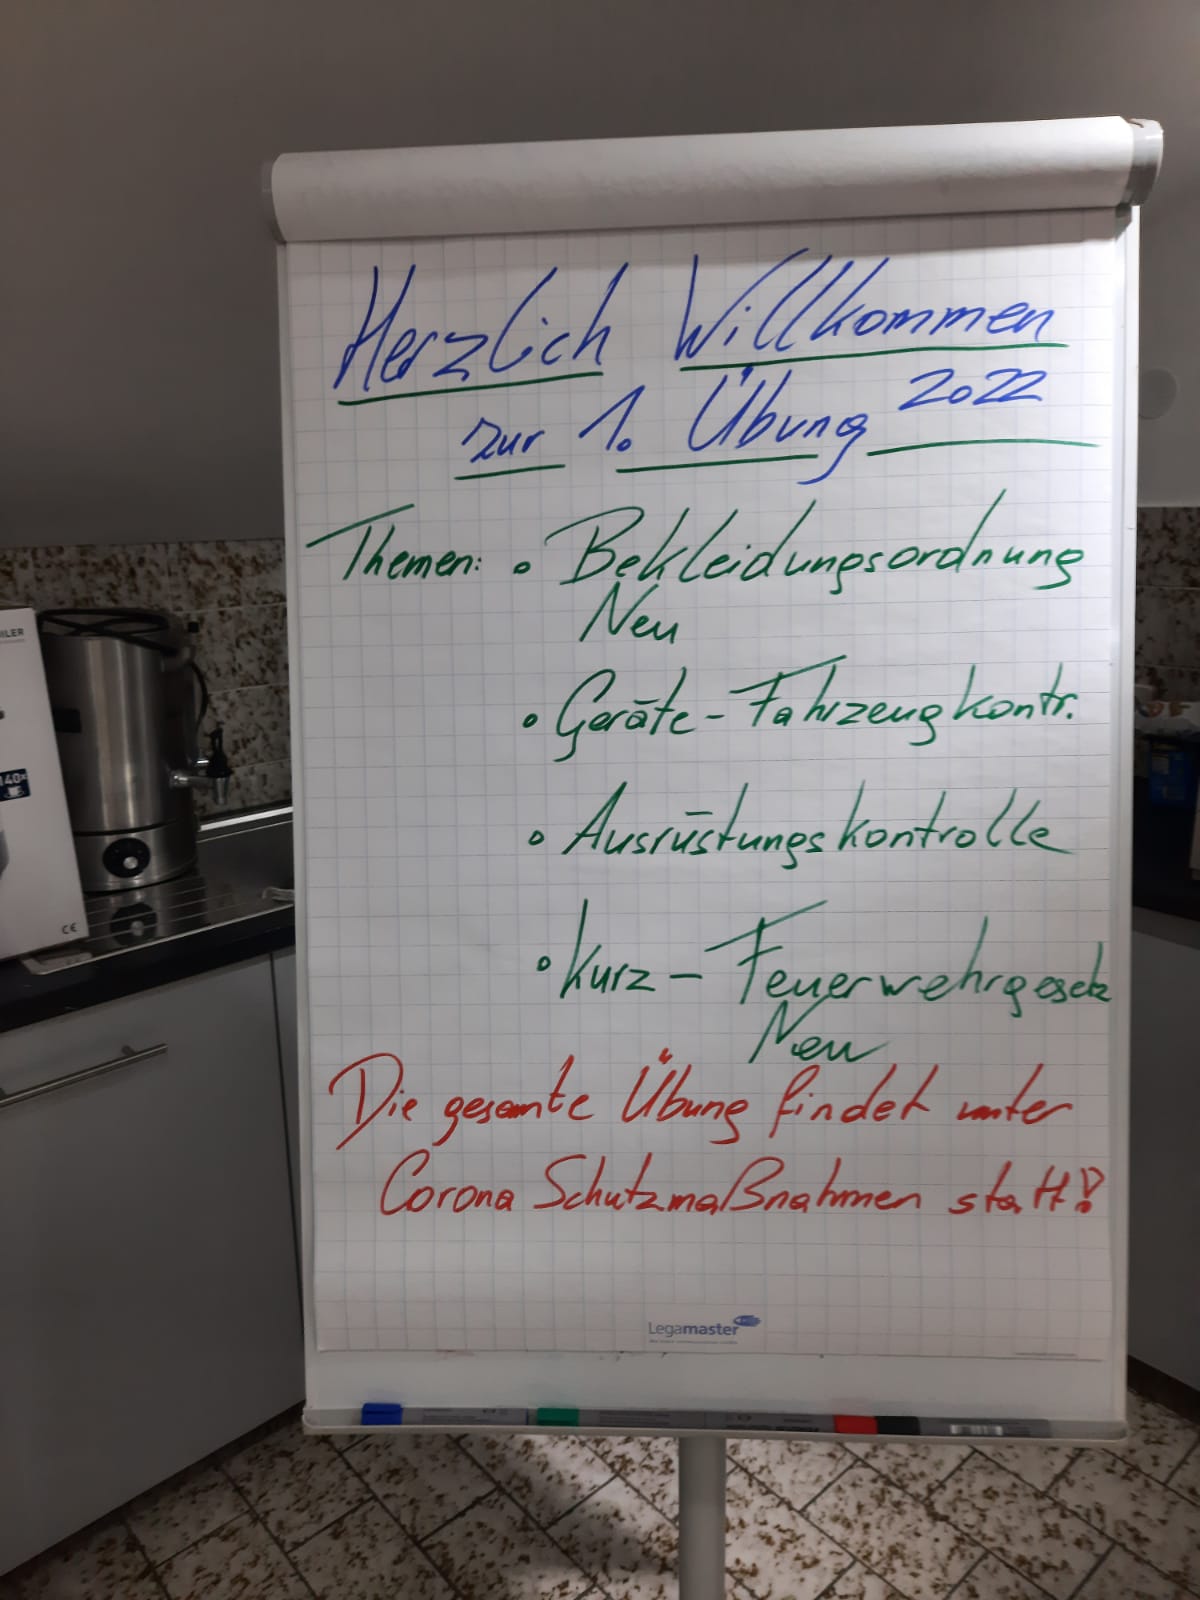 Herzlich Willkommen
zur 1. Übung 2022
Themen: • Bekleidungsordnung
Neu
• Geräte-Fahrzeugkontr.
• Ausrüstungskontrolle
• Kurz - Feuerwehrgesetz
Neu
Die gesamte Übung findet unter
Corona Schutzmaßnahmen statt!
Legamaster
ILER
140x
CE